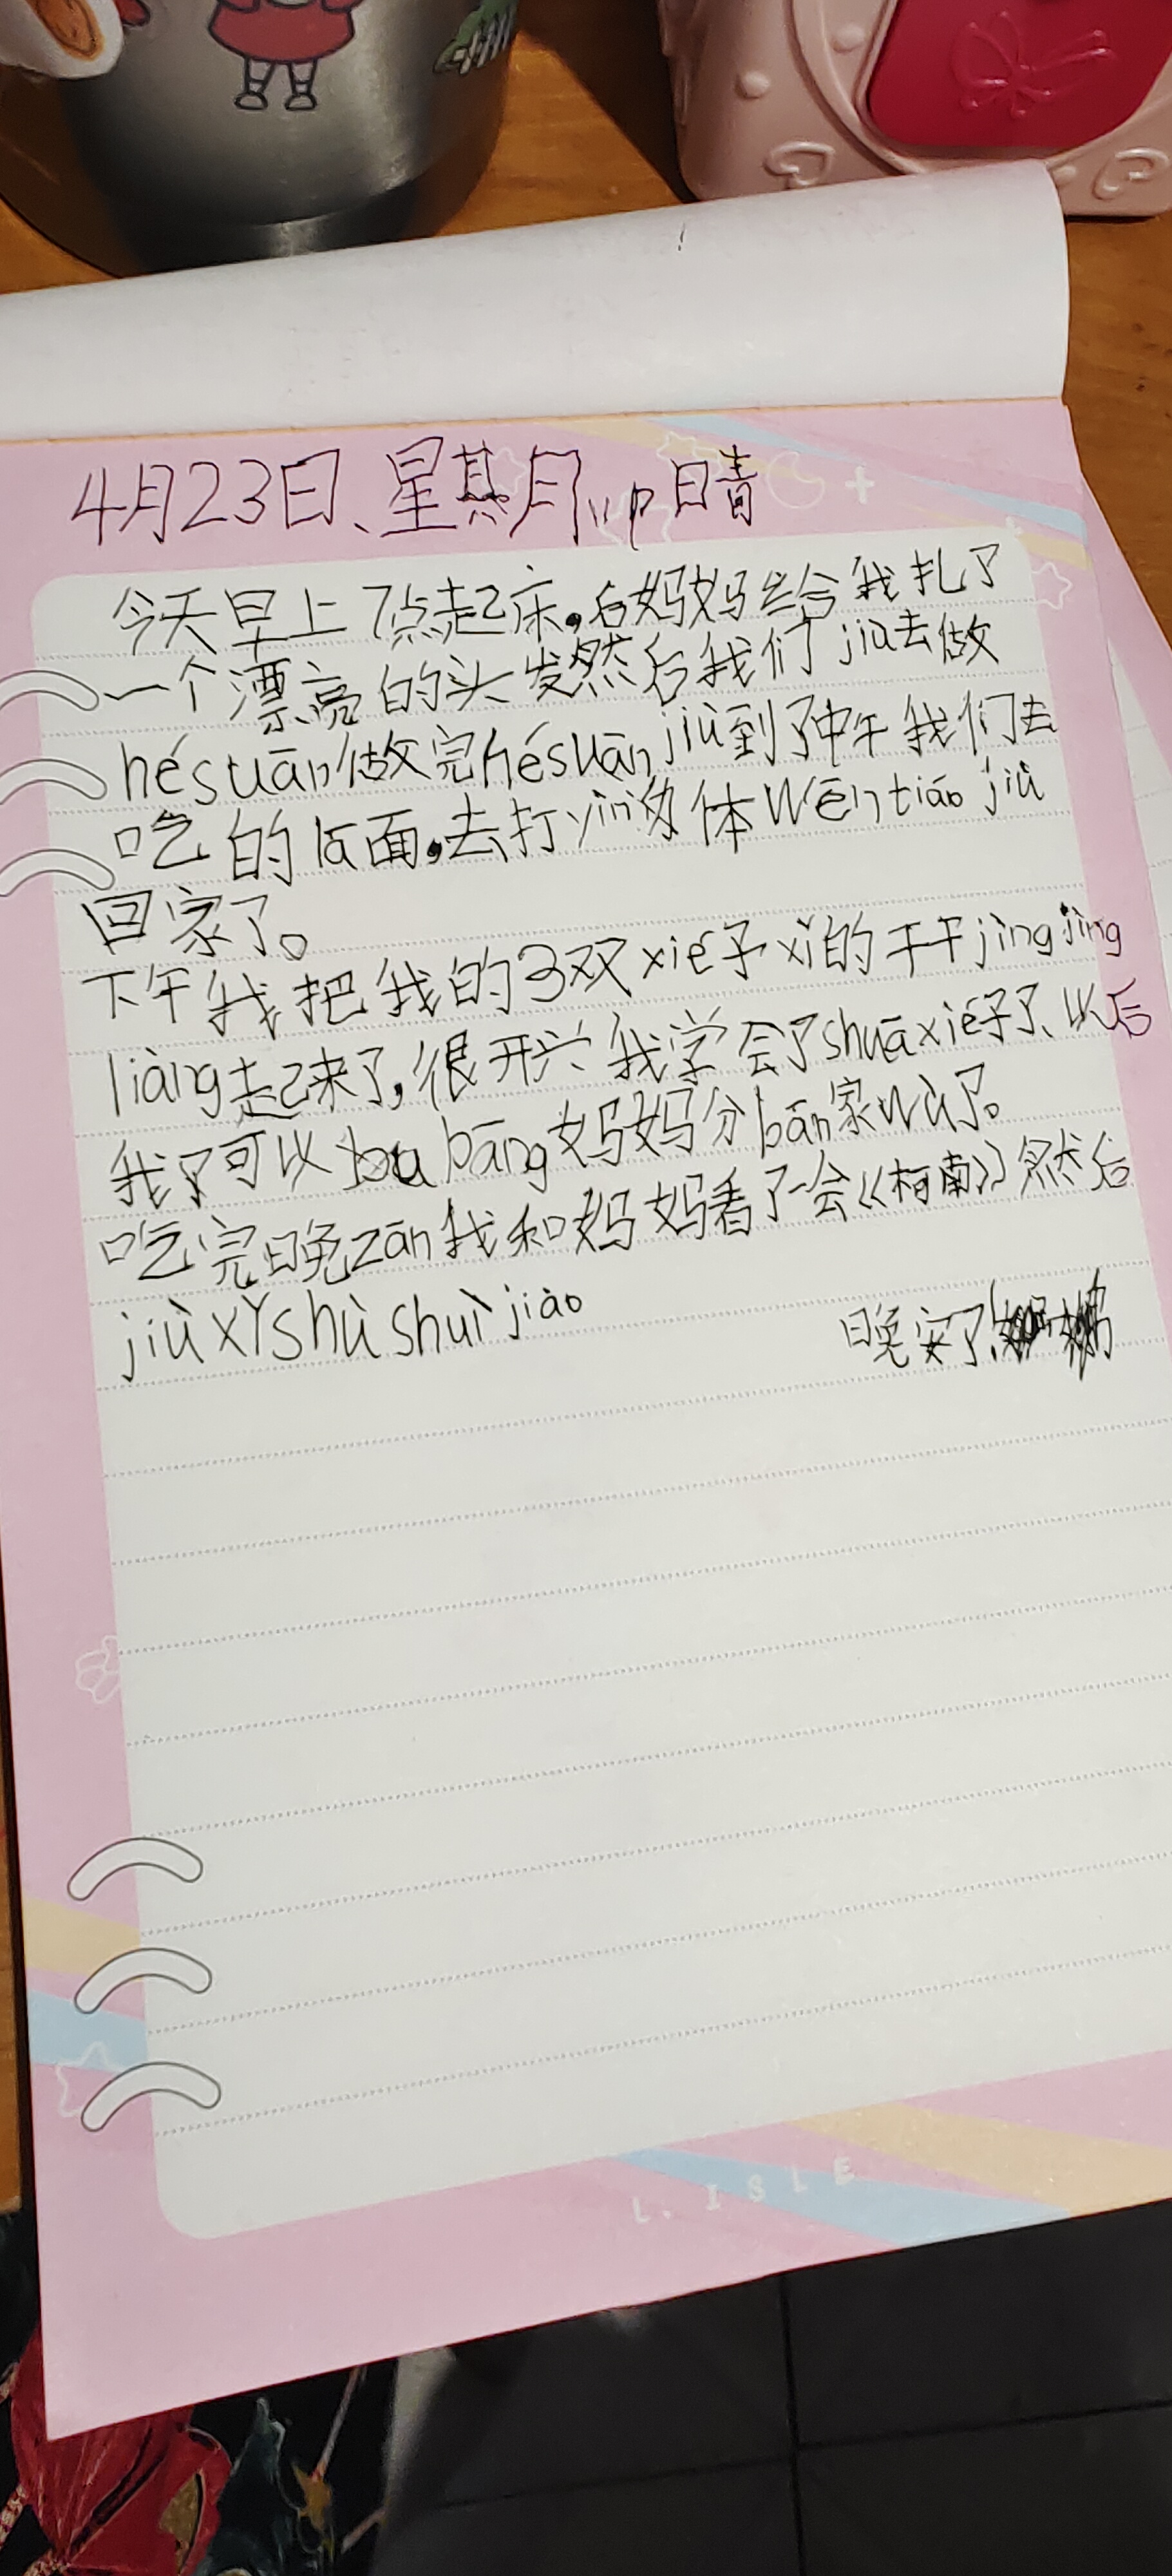 4月23日、星期月小 晴
今天早上7点起床,后妈妈给我扎了
一个漂亮的头发然后我们jiù去做
hésuān做完hésuān jiù到了中午我们去
吃的拉面,去打yìn身体Wēntiáo jiù
回家了。
下午我把我的3双xié子xǐ的干干jìngjìng
liàng起来了,很开兴我学会了shuāxié子了、以后
我了可以bāng妈妈分bān家wù了。
吃完晚zān我和妈妈看了一会《柯南》然后
jiù xǐshù shuìjiào
晚安了
L. ISLE